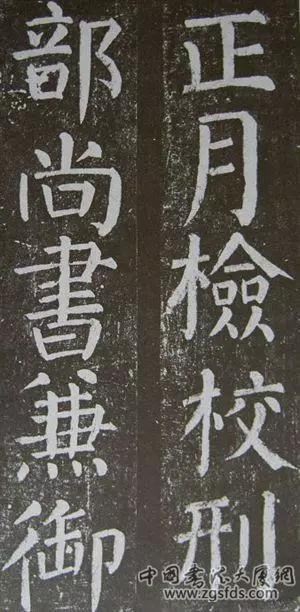 正月檢校刑
部尚書兼御
中国书法大厦网
www.zgsfds.com